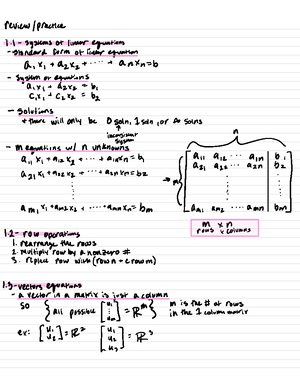 review/practice
1.1 - systems of linear equation
- standard form of linear equation
a₁x₁ + a₂x₂ + ····· + aₙxₙ = b
- system of equations
a₁x₁ + a₂x₂ = b₁
c₁x₁ + c₂x₂ = b₂
- solutions
* there will only be 0 soln, 1 soln, or ∞ solns
↑
inconsistent
system
- m equations w/ n unknowns
a₁₁x₁ + a₁₂x₂ + ··· + a₁ₙxₙ = b₁
a₂₁x₁ + a₂₂x₂ + ··· + a₂ₙxₙ = b₂
aₘ₁x₁ + aₘ₂x₂ + ··· + aₘₙxₙ = bₘ
n
a₁₁ a₁₂ ··· a₁ₙ | b₁
a₂₁ a₂₂ ··· a₂ₙ | b₂
m
aₘ₁ aₘ₂ ··· aₘₙ | bₘ
m x n
rows x columns
1.2 - row operations
1. rearrange the rows
2. multiply row by a nonzero #
3. replace row with (row n + c row m)
1.3 - vectors equations
- a vector in a matrix is just a column
so { all possible [u₁ u₂ ⋮ uₘ] } = ℝᵐ
m is the # of rows
in the 1 column matrix
ex: [u₁ u₂] = ℝ² [u₁ u₂ u₃] = ℝ³